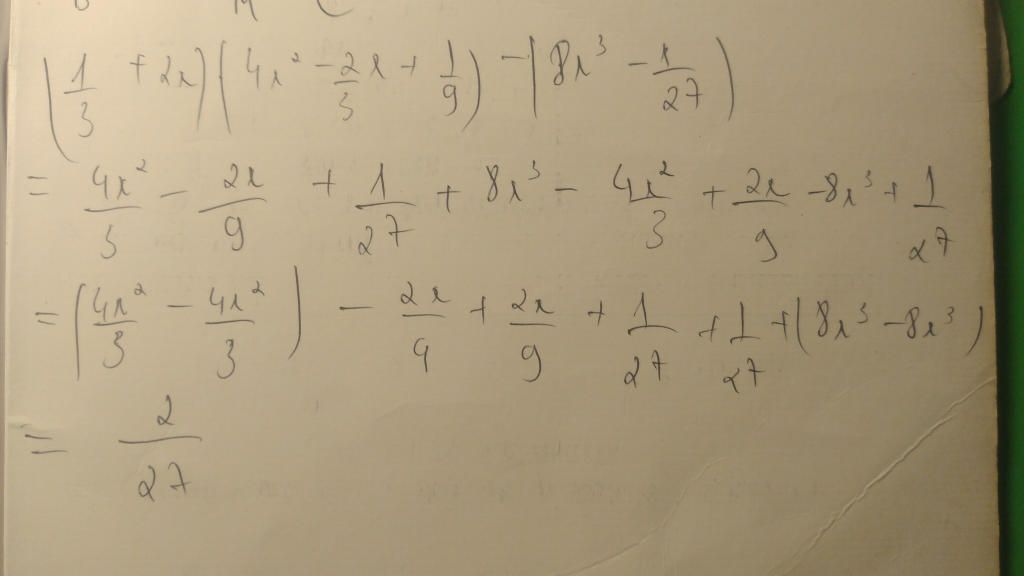 (1/3 + 2x)(4x² - 2/3 x + 1/9) - (8x³ - 1/27)
= 4x²/3 - 2x/9 + 1/27 + 8x³ - 4x²/3 + 2x/9 - 8x³ + 1/27
= (4x²/3 - 4x²/3) - 2x/9 + 2x/9 + 1/27 + 1/27 + (8x³ - 8x³)
= 2/27